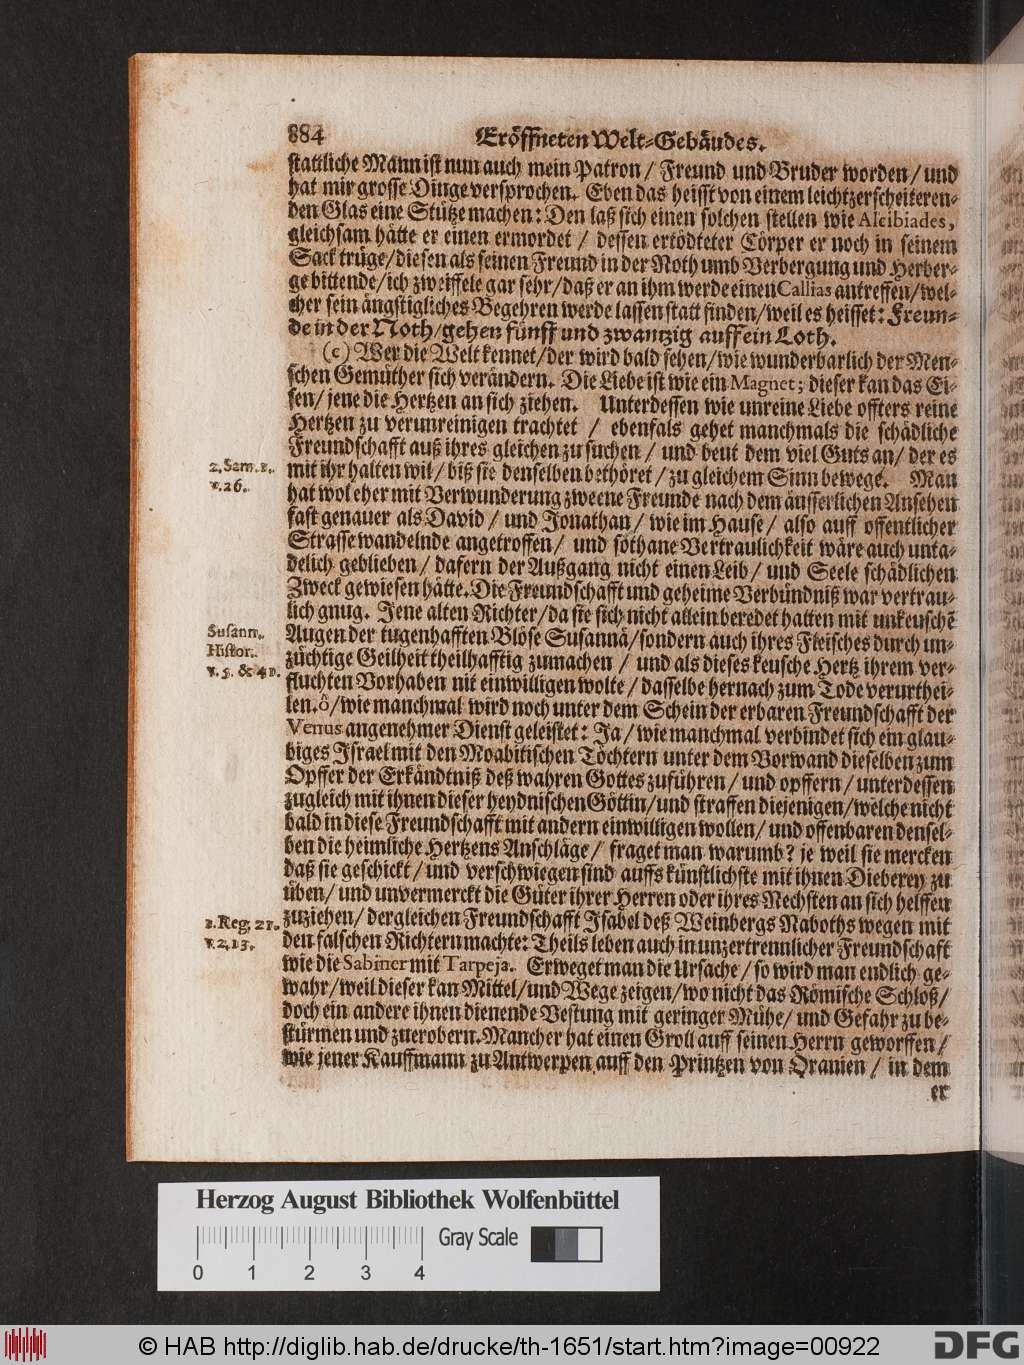 884 Eröffneten Welt-Gebäudes.
stattliche Mann ist nun auch mein Patron / Freund und Bruder worden / und
hat mir grosse Dinge versprochen. Eben das heisst von einem leicht zerscheiteren-
den Glas eine Stütze machen: Den laß sich einen solchen stellen wie Alcibiades,
gleichsam hätte er einen ermordet / dessen ertödteter Cörper er noch in seinem
Sack trüge / diesen als seinen Freund in der Noth umb Verbergung und Herber-
ge bittende / ich zweiffele gar sehr / daß er an ihm werde einen Callias antreffen / wel-
cher sein ängstigliches Begehren werde lassen statt finden / weil es heisset: Freun-
de in der Noth / gehen fünff und zwantzig auff ein Loth.
(c) Wer die Welt kennet / der wird bald sehen / wie wunderbarlich der Men-
schen Gemüther sich verändern. Die Liebe ist wie ein Magnet; dieser kan das Ei-
sen / jene die Hertzen an sich ziehen. Unterdessen wie unreine Liebe offters reine
Hertzen zu verunreinigen trachtet / ebenfals gehet manchmals die schädliche
Freundschafft auß ihres gleichen zu suchen / und beut dem viel Guts an / der es
2. Sam. 1.
v. 26.
mit ihr halten wil / biß sie denselben bethöret / zu gleichem Sinn bewege. Man
hat wol eher mit Verwunderung zweene Freunde nach dem äusserlichen Ansehen
fast genauer als David / und Jonathan / wie im Hause / also auff offentlicher
Strasse wandelnde angetroffen / und sothane Vertraulichkeit wäre auch unta-
delich geblieben / dafern der Außgang nicht einen Leib / und Seele schädlichen
Zweck gewiesen hätte. Die Freundschafft und geheime Verbündniß war vertrau-
lich gnug. Jene alten Richter / da sie sich nicht allein beredet hatten mit unkeuschẽ
Susann.
Histor.
v. 5. & 41.
Augen der tugenhafften Blöse Susannä / sondern auch ihres Fleisches durch un-
züchtige Geilheit theilhafftig zumachen / und als dieses keusche Hertz ihrem ver-
fluchten Vorhaben nit einwilligen wolte / dasselbe hernach zum Tode verurthei-
len. ô / wie manchmal wird noch unter dem Schein der erbaren Freundschafft der
Venus angenehmer Dienst geleistet: Ja / wie manchmal verbindet sich ein glau-
biges Israel mit den Moabitischen Töchtern unter dem Vorwand dieselben zum
Opffer der Erkändtniß deß wahren Gottes zuführen / und opffern / unterdessen
zugleich mit ihnen dieser heydnischen Göttin / und straffen diejenigen / welche nicht
bald in diese Freundschafft mit andern einwilligen wollen / und offenbaren densel-
ben die heimliche Hertzens Anschläge / fraget man warumb? je weil sie mercken
daß sie geschickt / und verschwiegen sind auffs künstlichste mit ihnen Dieberey zu
üben / und unvermerckt die Güter ihrer Herren oder ihres Nechsten an sich helffen
1. Reg. 21.
v. 2, 13.
zuziehen / dergleichen Freundschafft Isabel deß Weinbergs Naboths wegen mit
den falschen Richtern machte: Theils leben auch in unzertrennlicher Freundschafft
wie die Sabiner mit Tarpeja. Erweget man die Ursache / so wird man endlich ge-
wahr / weil dieser kan Mittel / und Wege zeigen / wo nicht das Römische Schloß /
doch ein andere ihnen dienende Vestung mit geringer Mühe / und Gefahr zu be-
stürmen und zuerobern. Mancher hat einen Groll auff seinen Herrn geworffen /
wie jener Kauffmann zu Antwerpen auff den Printzen von Oranien / in dem
er
Herzog August Bibliothek Wolfenbüttel
Gray Scale
0 1 2 3 4
© HAB http://diglib.hab.de/drucke/th-1651/start.htm?image=00922
DFG